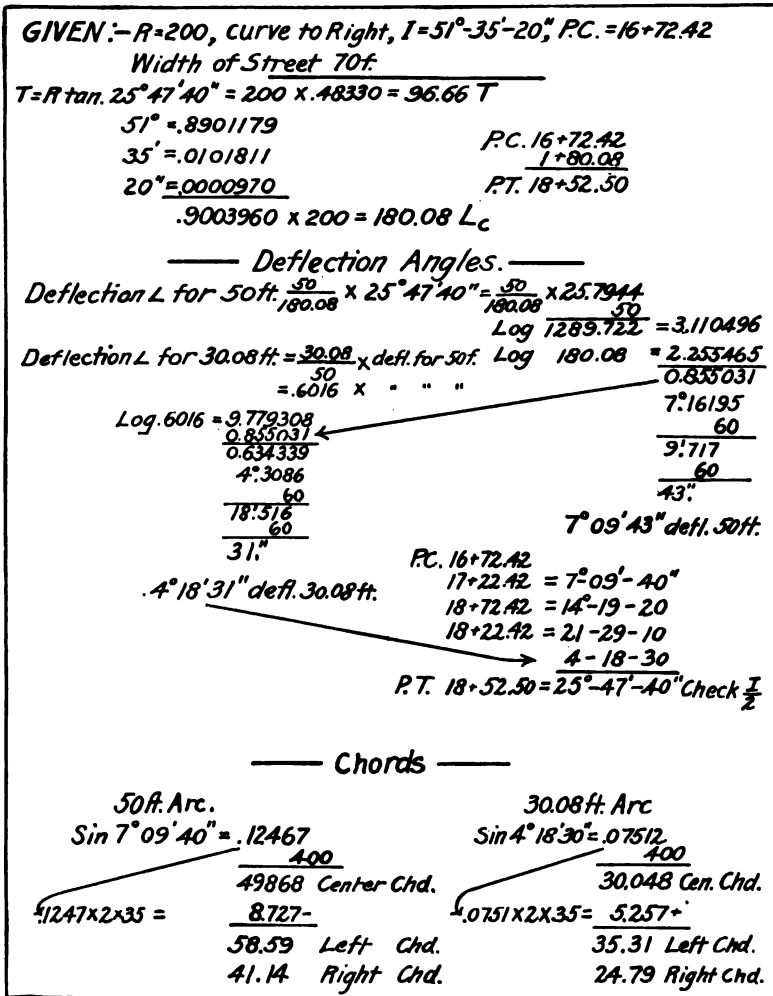 GIVEN:- R=200, Curve to Right, I=51°-35'-20", P.C.=16+72.42
Width of Street 70f.
T=R tan. 25°47'40" = 200 x .48330 = 96.66 T
51° = .8901179
35' = .0101811
20" = .0000970
.9003960 x 200 = 180.08 Lc
P.C. 16+72.42
1+80.08
P.T. 18+52.50
Deflection Angles.
Deflection ∠ for 50ft. 50/180.08 x 25°47'40" = 50/180.08 x 25.7944
50
Log 1289.722 = 3.110496
Deflection ∠ for 30.08 ft. = 30.08/50 x defl. for 50f. Log 180.08 = 2.255465
= .6016 x " " "
0.855031
7°.16195
60
9'.717
60
43."
7°09'43" defl. 50ft.
Log .6016 = 9.779308
0.855031
0.634339
4°.3086
60
18'.516
60
31."
.4°18'31" defl. 30.08 ft.
P.C. 16+72.42
17+22.42 = 7°-09'-40"
18+72.42 = 14°-19-20
18+22.42 = 21-29-10
4-18-30
P.T. 18+52.50 = 25°-47'-40" Check I/2
Chords
50ft. Arc.
Sin 7°09'40" = .12467
400
49868 Center Chd.
.1247x2x35 = 8.727-
58.59 Left Chd.
41.14 Right Chd.
30.08 ft. Arc
Sin 4°18'30" = .07512
400
30.048 Cen. Chd.
.0751x2x35 = 5.257+
35.31 Left Chd.
24.79 Right Chd.